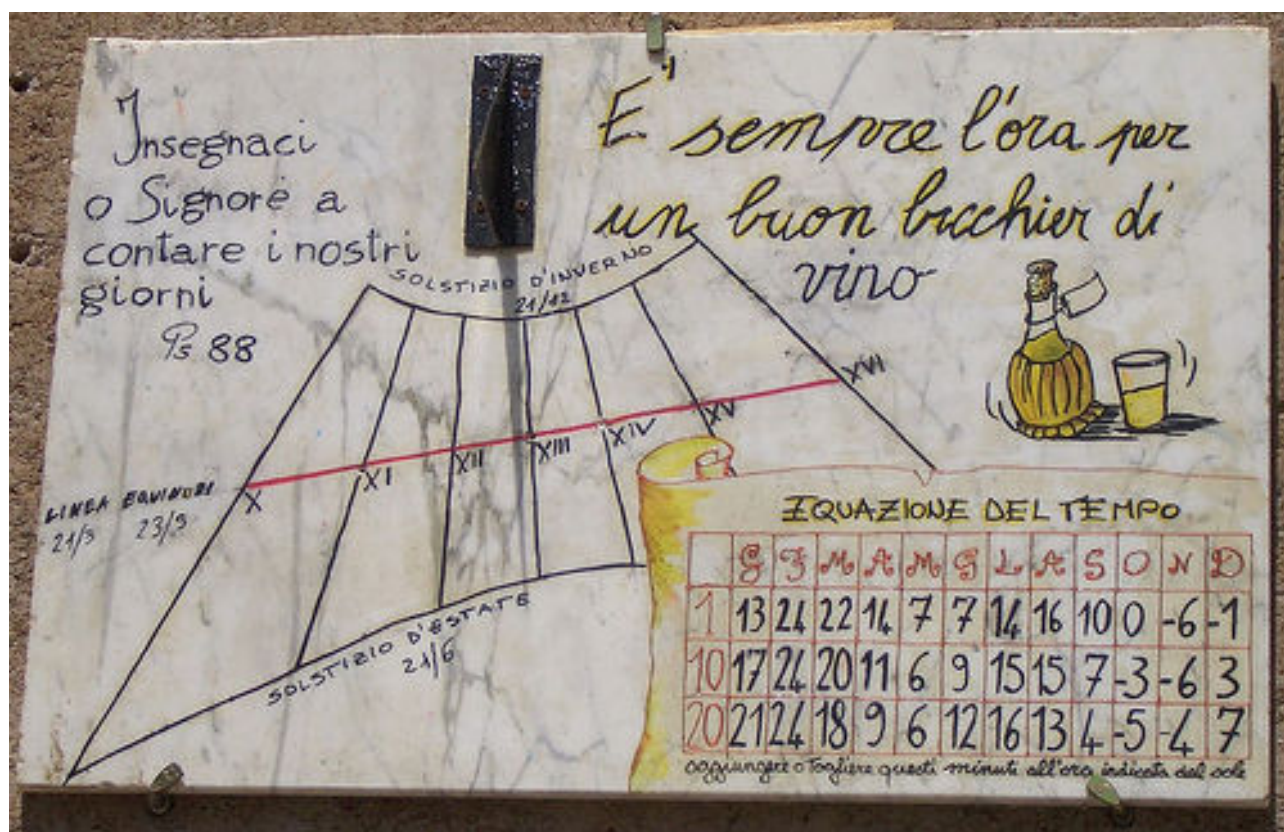 Insegnaci
o Signore a
contare i nostri
giorni
Ps 88
E' sempre l'ora per
un buon bicchier di
vino
SOLSTIZIO D'INVERNO
21/12
X XI XII XIII XIV XV XVI
LINEA EQUINOZI
21/3 23/9
SOLSTIZIO D'ESTATE
21/6
EQUAZIONE DEL TEMPO
G F M A M G L A S O N D
1 13 24 22 14 7 7 14 16 10 0 -6 -1
10 17 24 20 11 6 9 15 15 7 -3 -6 3
20 21 24 18 9 6 12 16 13 4 -5 -4 7
aggiungere o togliere questi minuti all'ora indicata dal sole